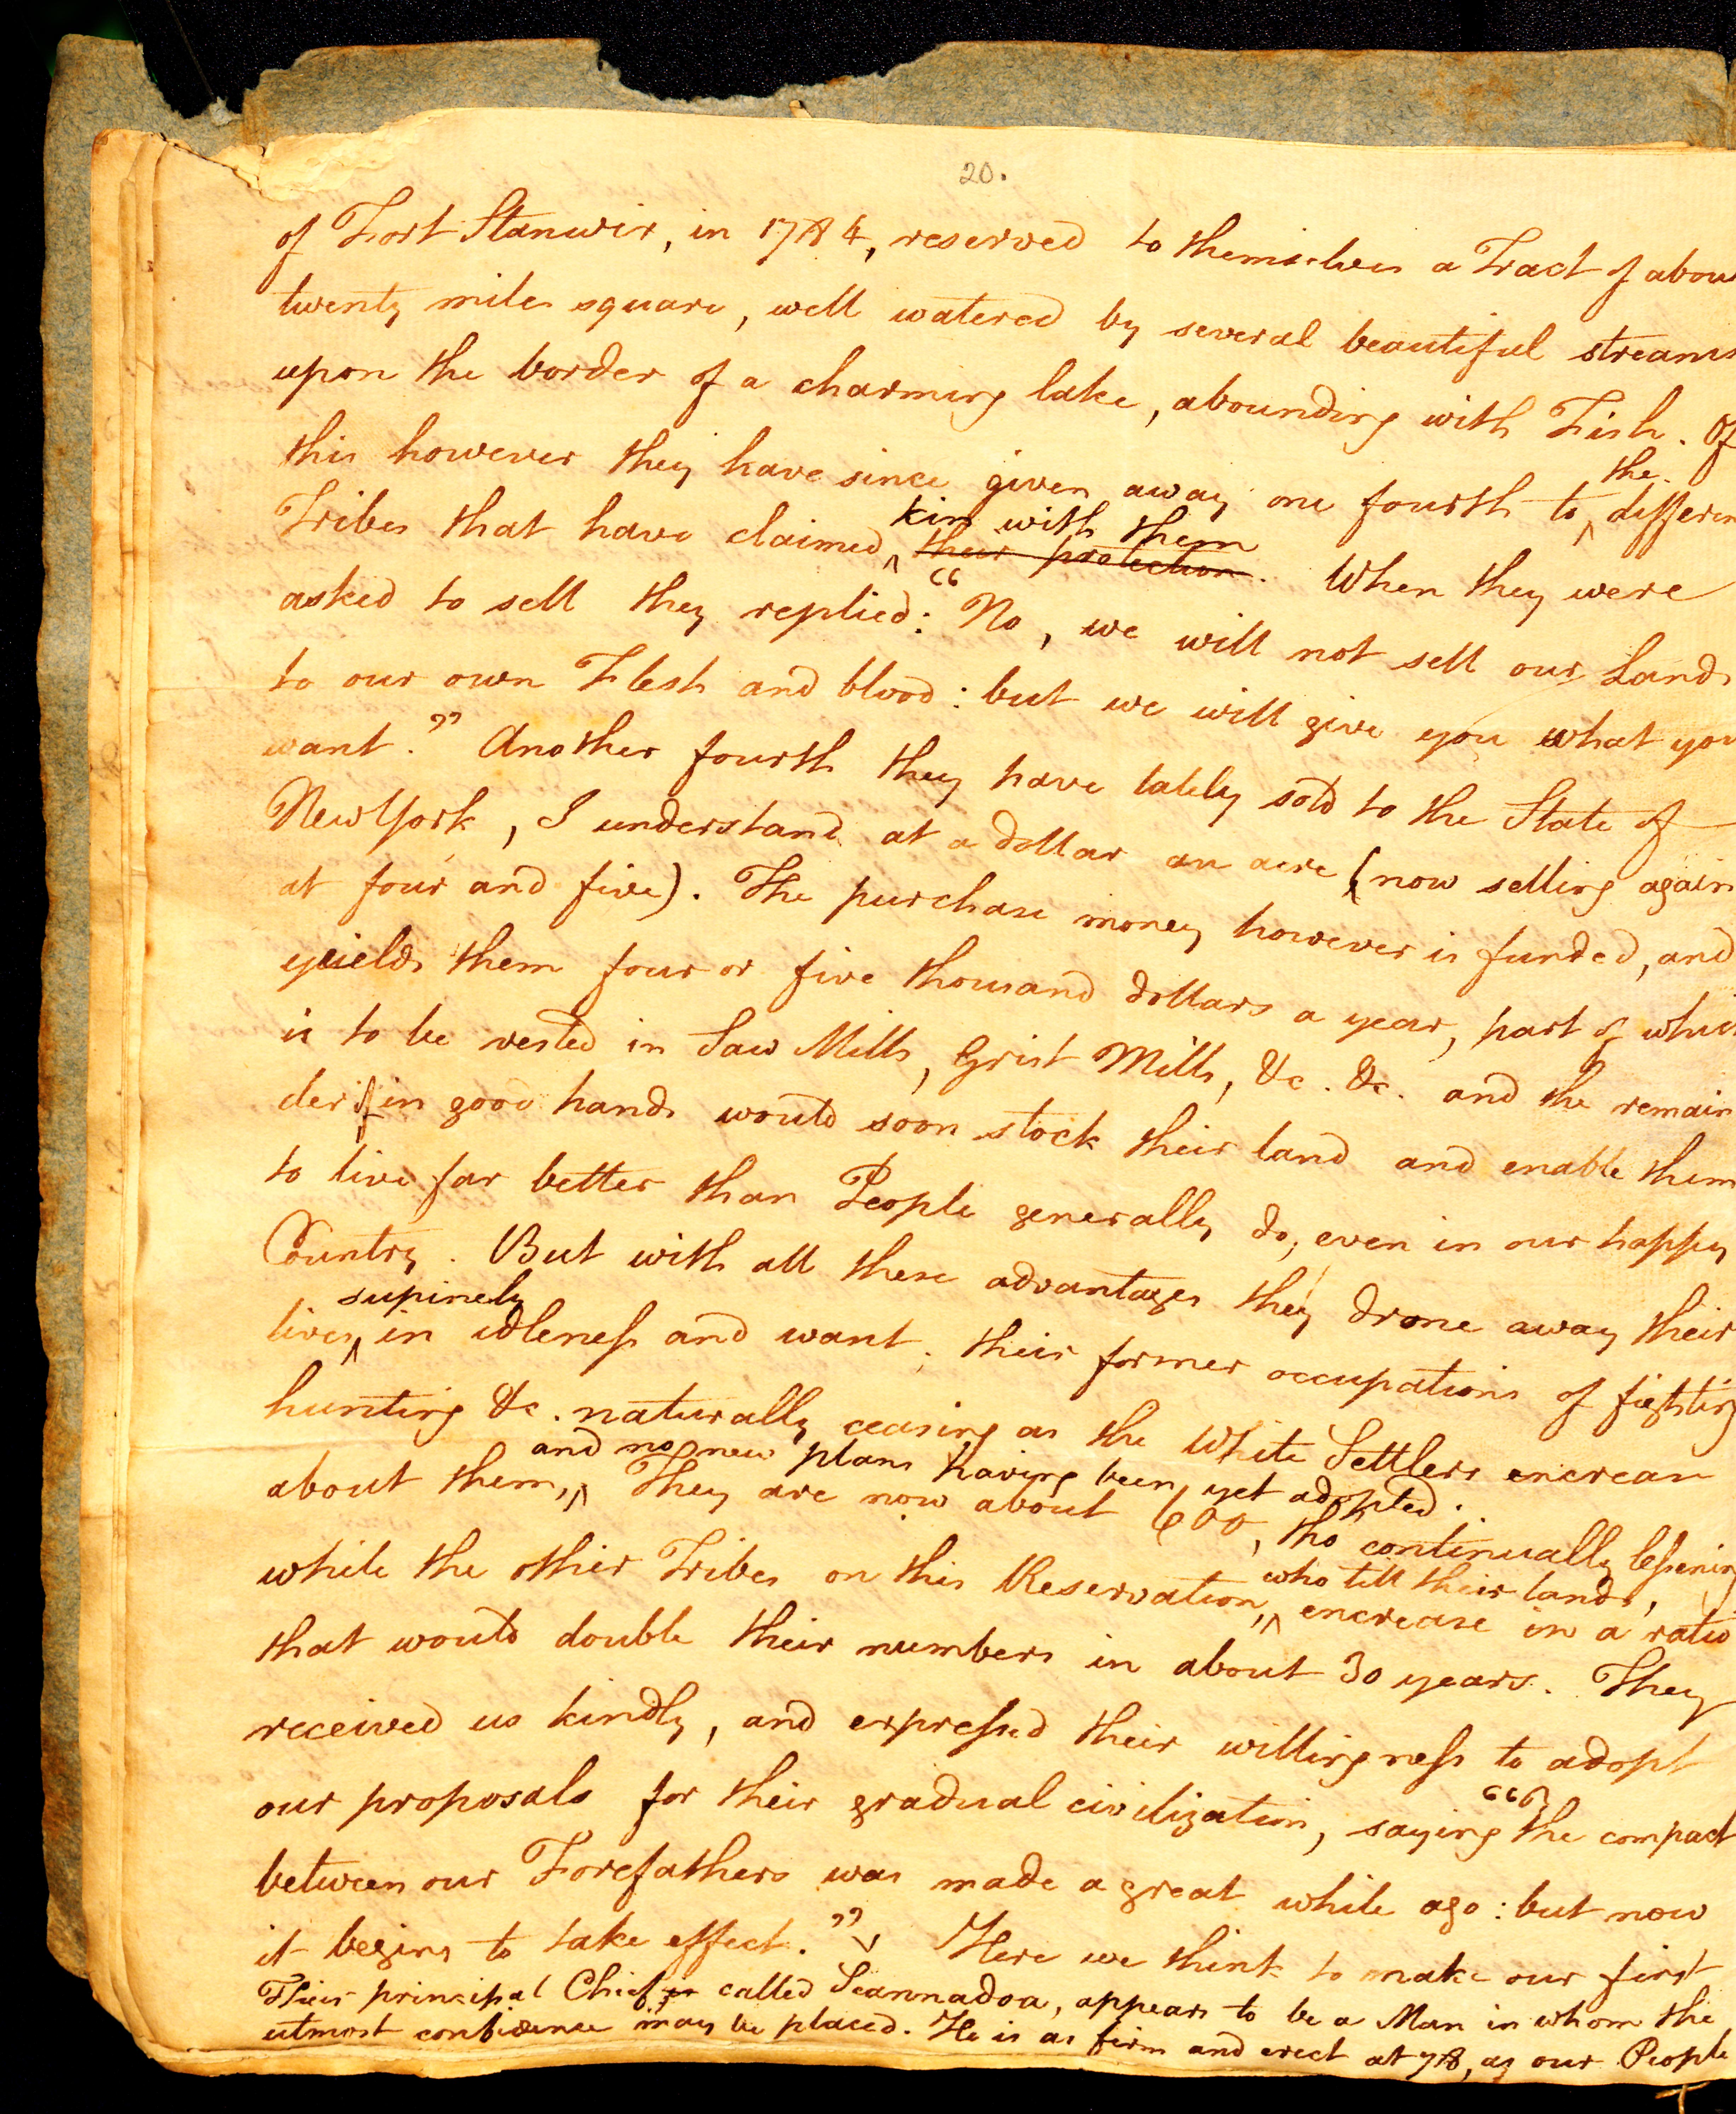 20.
of Fort Stanwix, in 1784, reserved to themselves a Tract of abou
twenty miles square, well watered by several beautiful streams
upon the border of a charming lake, abounding with Fish. Of
this however they have since given away one fourth to the differen
Tribes that have claimed kin with them their protection. When they were
asked to sell they replied: "No, we will not sell our Lands
to our own Flesh and blood: but we will give you what you
want." Another fourth they have lately sold to the State of
New York, I understand at a dollar an acre (now selling again
at four and five). The purchase money however is funded, and
yields them four or five thousand dollars a year, part of whic
is to be vested in Saw Mills, Grist Mills, &c. &c. and the remain
der if in good hands would soon stock their land and enable them
to live far better than People generally do, even in our happy
Country. But with all these advantages they drone away their
lives supinely in idleness and want, their former occupations of fighting
hunting &c. naturally ceasing as the White Settlers encrease
about them, and no new plans having been yet adopted. They are now about 600, tho continually lessening
while the other Tribes on this Reservation, who till their lands, encrease in a ratio
that would double their numbers in about 30 years. They
received us kindly, and expressed their willingness to adopt
our proposals for their gradual civilization, saying "the compact
between our Forefathers was made a great while ago: but now
it begins to take effect." Here we think to make our first
Their principal Chief, is called Scannadoa, appears to be a Man in whom the
utmost confidence may be placed. He is as firm and erect at 78, as our People